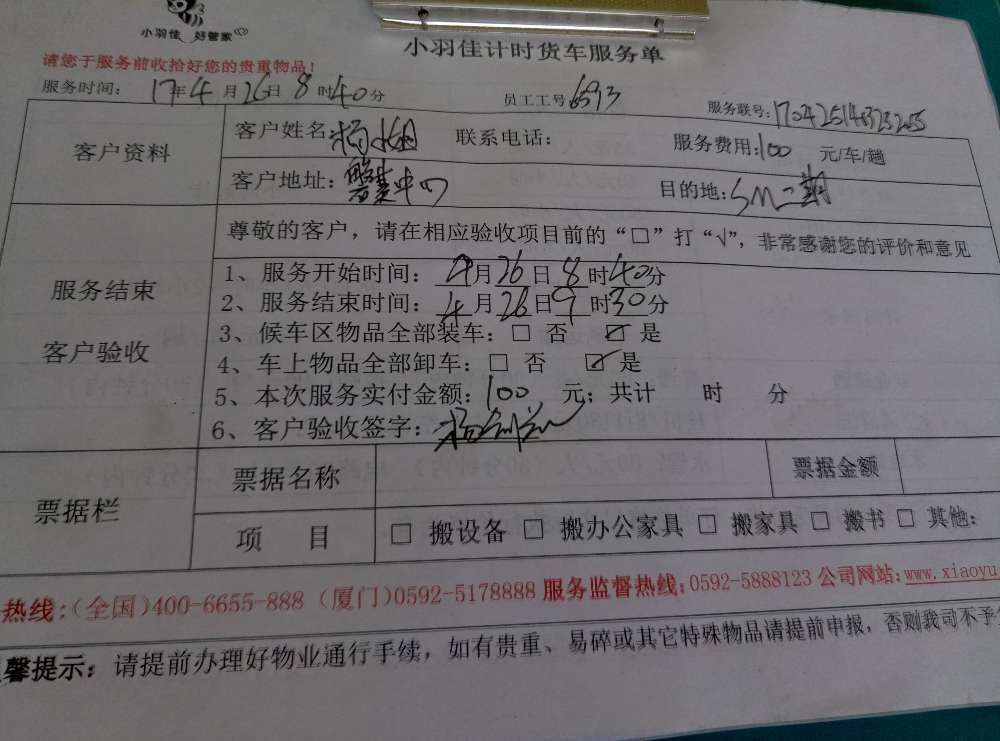 小羽佳 好管家
小羽佳计时货车服务单
请您于服务前收拾好您的贵重物品！
服务时间： 17年4月26日8时40分 员工工号6593 服务联号：
客户资料
客户姓名： 联系电话： 服务费用：100 元/车/趟
客户地址：磐基中心 目的地：SM二期
服务结束
客户验收
尊敬的客户，请在相应验收项目前的“□”打“√”，非常感谢您的评价和意见
1、服务开始时间：4月26日8时40分
2、服务结束时间：4月26日9时30分
3、候车区物品全部装车：□ 否 ☑ 是
4、车上物品全部卸车：□ 否 ☑ 是
5、本次服务实付金额：100 元；共计 时 分
6、客户验收签字：
票据栏
票据名称 票据金额
项 目 □ 搬设备 □ 搬办公家具 □ 搬家具 □ 搬书 □ 其他：
热线：（全国）400-6655-888（厦门）0592-5178888 服务监督热线：0592-5888123 公司网站：www.xiaoyu
馨提示：请提前办理好物业通行手续，如有贵重、易碎或其它特殊物品请提前申报，否则我司不予